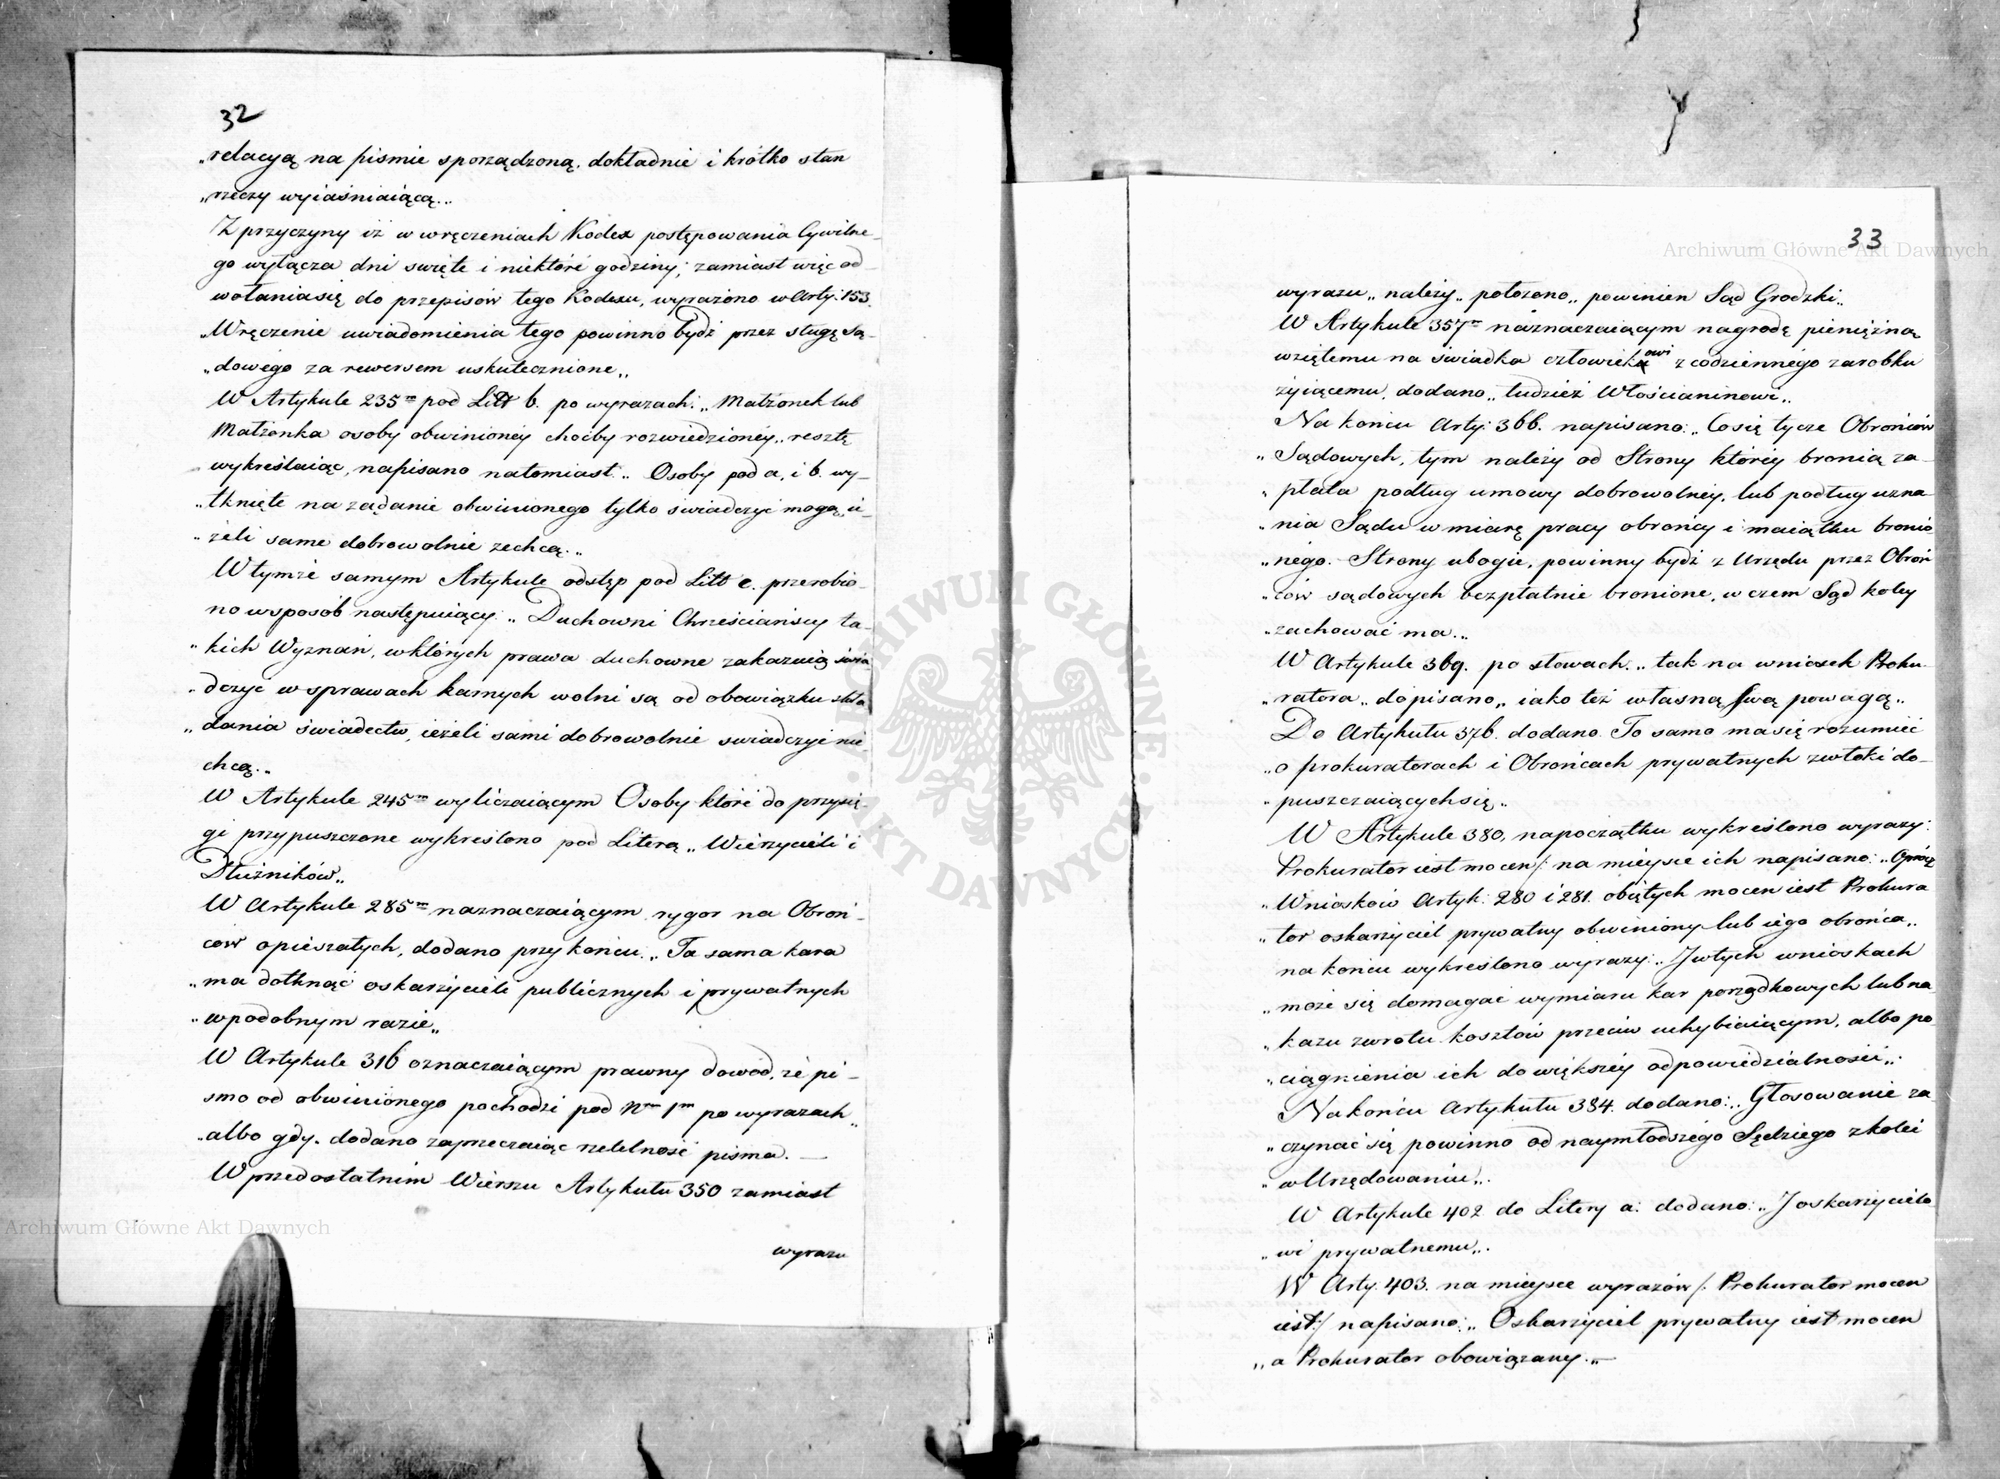 32
„relacyą na pismie sporządzoną, dokładnie i krótko stan
„rzeczy wyiaśniaiącą„
Z przyczyny iż w wręczeniach Kodex postępowania Cywilne-
go wyłącza dni święte i niektóré godziny; zamiast więc od-
wołania się do przepisów tego Kodexu, wyrażono w Arty: 153.
„Wręczenie uwiadomienia tego powinno bydź przez sługę są-
„dowego za rewersem uskutecznione„
W Artykule 235m pod Litt b. po wyrazach: „Małżonek lub
Małżonka osoby obwinioney choćby rozwiedzioney„ resztę
wykreślaiąc, napisano natomiast: „Osoby pod a, i b. wy-
„tknięte na żądanie obwinionego tylko świadczyć mogą, ie-
„żeli same dobrowolnie zechcą„
W tymże samym Artykule odstęp pod Litt c. przerobio-
no w sposób następuiący: „Duchowni Chrześciańscy ta-
„kich Wyznań, w których prawa duchowne zakazuią świa
„dczyć w sprawach karnych wolni są od obowiązku skła
„dania świadectw, ieżeli sami dobrowolnie świadczyć nie
chcą„
W Artykule 245m wyliczaiącym Osoby któré do przysię-
gi przypuszczone wykreślono pod Literą „Wierzycieli i
Dłużników„
W Artykule 285m naznaczaiącym rygor na Obroń-
ców opieszałych, dodano przy końcu: „Ta sama kara
„ma dotknąć oskarżycieli publicznych i prywatnych
„w podobnym razie„
W Artykule 316 oznaczaiącym prawny dowód, że pi-
smo od obwinionego pochodzi pod Nrm 1m po wyrazach„
„albo gdy„ dodano zaprzeczaiąc rzetelność pisma. —
W przedostatnim Wierszu Artykułu 350 zamiast
wyrazu
33
wyrazu „należy„ położono „powinien Sąd Grodzki„
W Artykule 357m naznaczaiącym nagrodę pieniężną
wziętemu na świadka człowiekowi z codziennego zarobku
żyiącemu, dodano „tudzież Włościaninowi„
Na końcu Arty: 366. napisano: „Co się tycze Obrońców
„Sądowych, tym należy od Strony któréy bronią za-
„płata podług umowy dobrowolnéy, lub podług uzna-
„nia Sądu w miarę pracy obrońcy i maiątku bronio
„nego. Strony ubogie, powinny bydź z Urzędu przez Obroń
„ców sądowych bezpłatnie bronione, w czem Sąd koley
„zachować ma„
W Artykule 369. po słowach: „tak na wniosek Proku-
„ratora„ dopisano „iako też własną swą powagą„
Do Artykułu 376. dodano. To samo ma się rozumieć
„o prokuratorach i Obrońcach prywatnych zwłoki do-
„puszczaiących się„
W Artykule 380, na początku wykreślono wyrazy:
Prokurator iest mocen/: na mieysce ich napisano: „Oprócz
„Wniosków Artyk: 280 i 281. obiętych mocen iest Prokura
„tor oskarżyciel prywatny obwiniony lub iego obrońca„
na końcu wykreślono wyrazy: „J w tych wnioskach
„może się domagać wymiaru kar porządkowych lub na
„kazu zwrotu kosztów przeciw uchybiaiącym, albo po
„ciągnienia ich do większéy odpowiedzialności„
Na końcu Artykułu 384. dodano: „Głosowanie za-
„czynać się powinno od naymłodszego Sędziego z kolei
„w Urzędowaniu„
W Artykule 402 do Litery a: dodano: „J oskarżycielo
„wi prywatnemu„
W Arty. 403. na mieysce wyrazów /: Prokurator mocen
iest:/ napisano: „Oskarżyciel prywatny iest mocen
„a Prokurator obowiązany„ —
Archiwum Główne Akt Dawnych
Archiwum Główne Akt Dawnych
ARCHIWUM GŁÓWNE AKT DAWNYCH